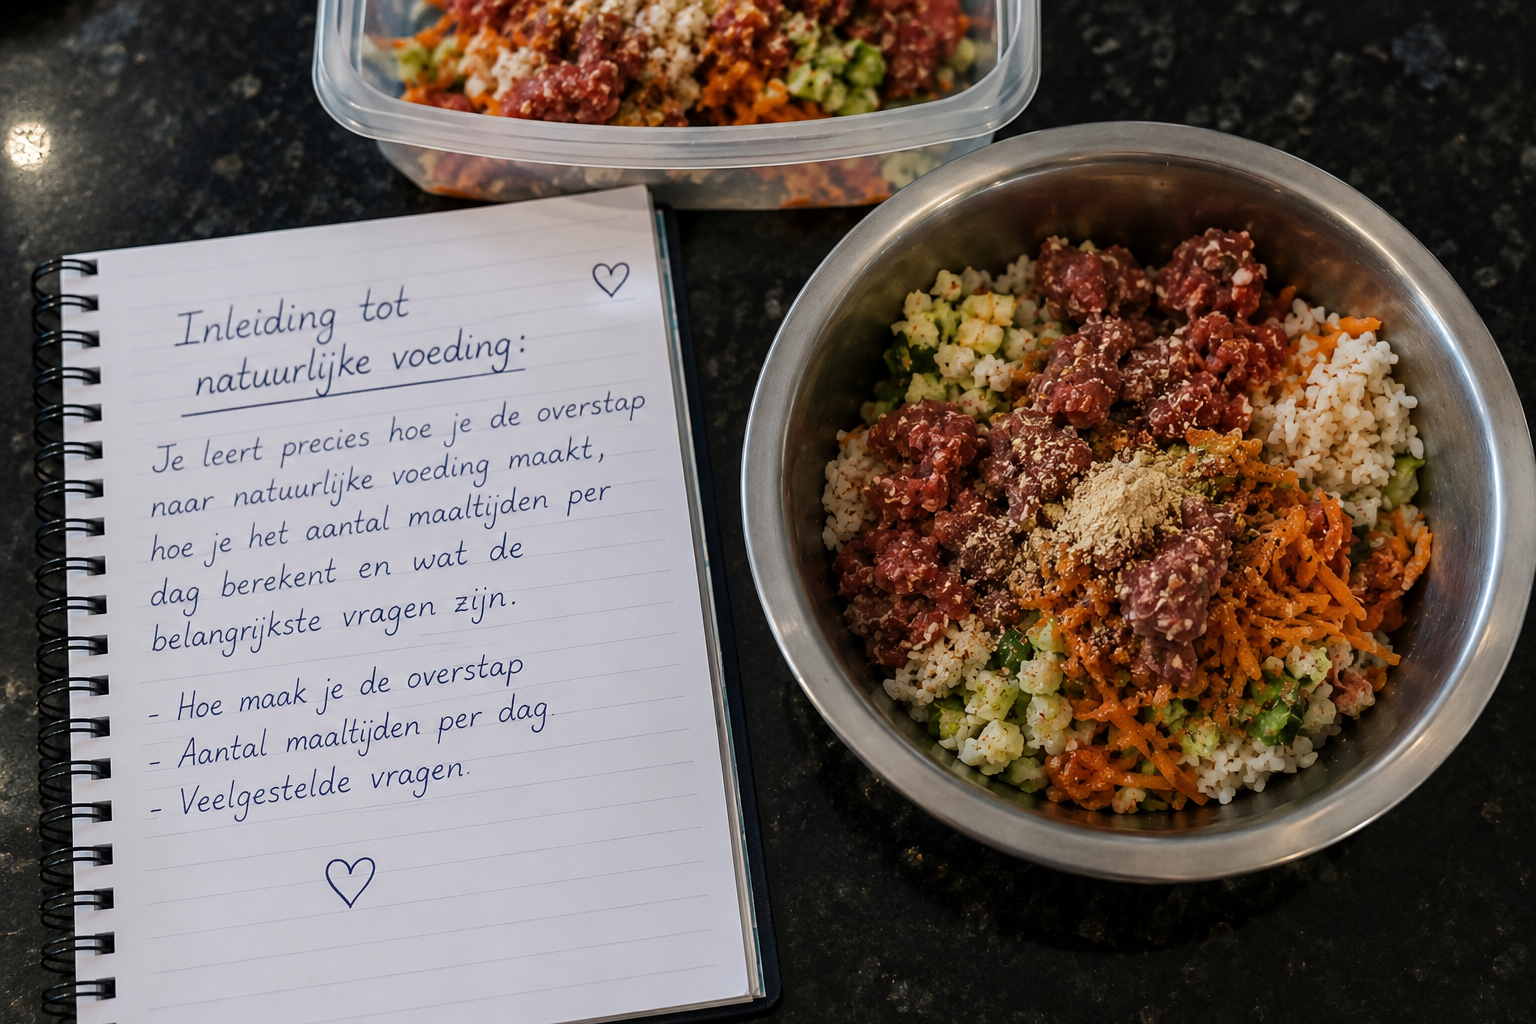 Inleiding tot
natuurlijke voeding:
Je leert precies hoe je de overstap
naar natuurlijke voeding maakt,
hoe je het aantal maaltijden per
dag berekent en wat de
belangrijkste vragen zijn.
- Hoe maak je de overstap
- Aantal maaltijden per dag.
- Veelgestelde vragen.